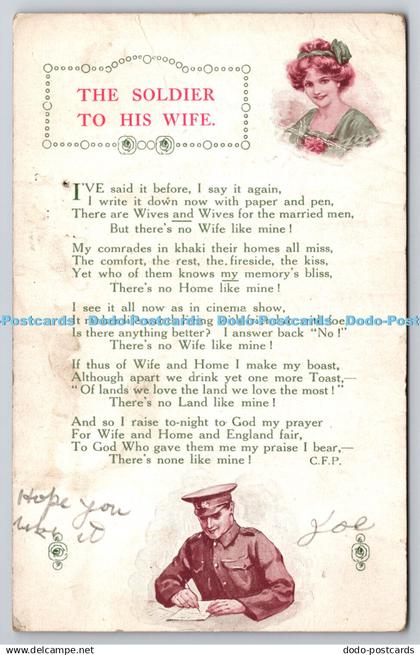 THE SOLDIER
TO HIS WIFE.
I'VE said it before, I say it again,
I write it down now with paper and pen,
There are Wives and Wives for the married men,
But there's no Wife like mine!
My comrades in khaki their homes all miss,
The comfort, the rest, the fireside, the kiss,
Yet who of them knows my memory's bliss,
There's no Home like mine!
I see it all now as in cinema show,
Is there anything better? I answer back "No!"
There's no Wife like mine!
If thus of Wife and Home I make my boast,
Although apart we drink yet one more Toast,—
"Of lands we love the land we love the most!"
There's no Land like mine!
And so I raise to-night to God my prayer
For Wife and Home and England fair,
To God Who gave them me my praise I bear,—
There's none like mine! C.F.P.
Hope you
it
Joe
Dodo-Postcards
hip.market/dodo-postcards